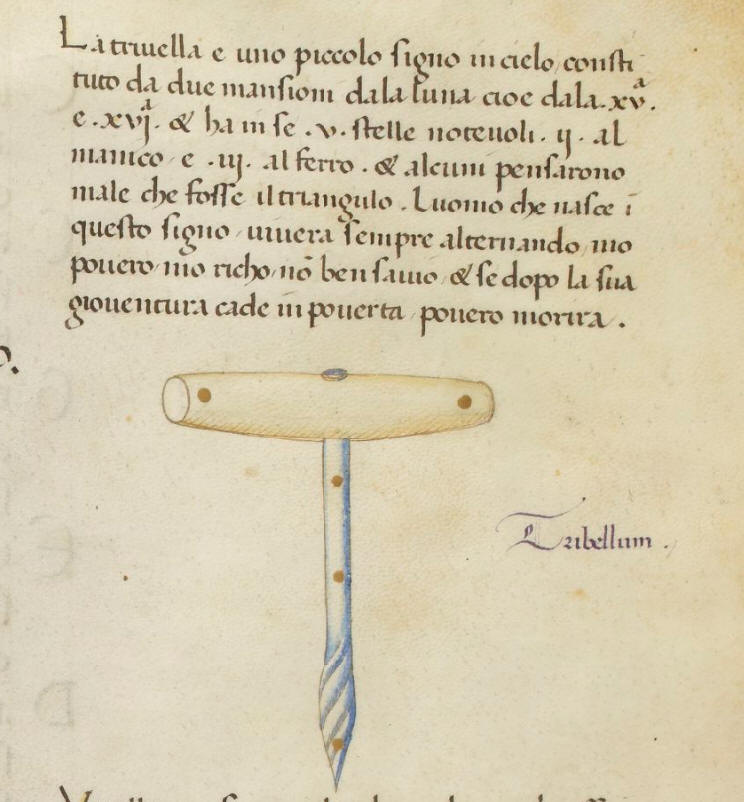 La triuella e uno piccolo signo in cielo consti
tuto da due mansioni dala luna cioe dala .xvª.
e .xvjª. & ha in se .v. stelle noteuoli. ij. al
manico e .iij. al ferro. & alcuni pensarono
male che fosse il triangulo. Luomo che nasce ĩ
questo signo uiuera sempre alternando, mo
pouero mo richo, nõ ben sauio, & se dopo la sua
giouentura cade in pouerta, pouero morira.
Tribellum.